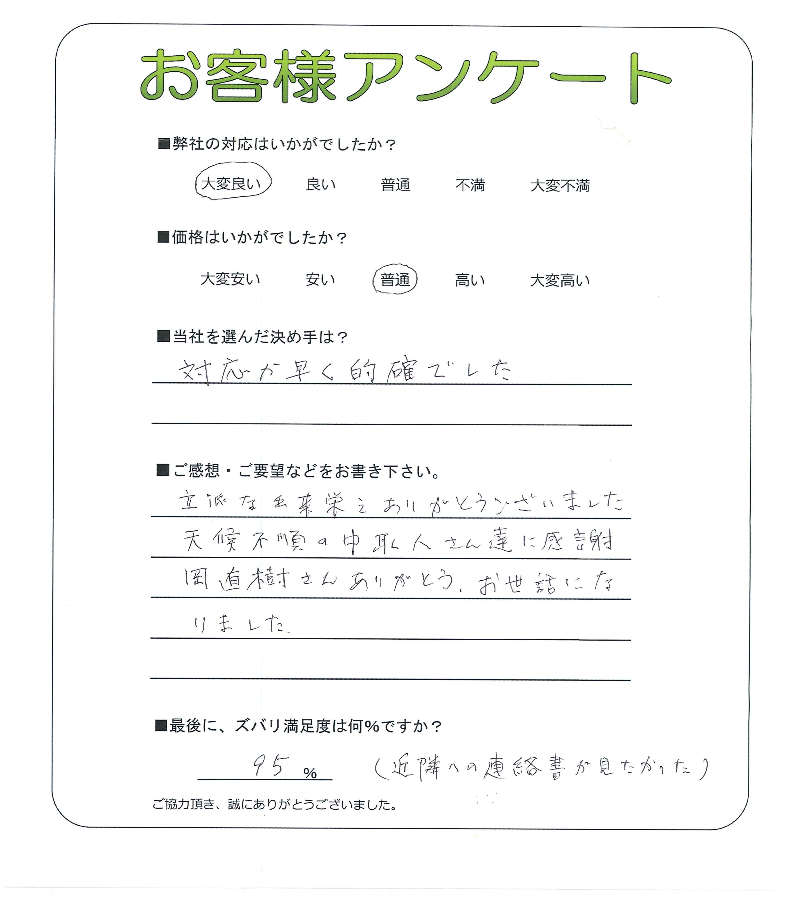 お客様アンケート
■弊社の対応はいかがでしたか？
大変良い 良い 普通 不満 大変不満
■価格はいかがでしたか？
大変安い 安い 普通 高い 大変高い
■当社を選んだ決め手は？
対応が早く的確でした
■ご感想・ご要望などをお書き下さい。
立派な出来栄えありがとうございました
天候不順の中職人さん達に感謝
岡直樹さんありがとう。お世話にな
りました。
■最後に、ズバリ満足度は何％ですか？
95 % (近隣への連絡書が見たかった)
ご協力頂き、誠にありがとうございました。